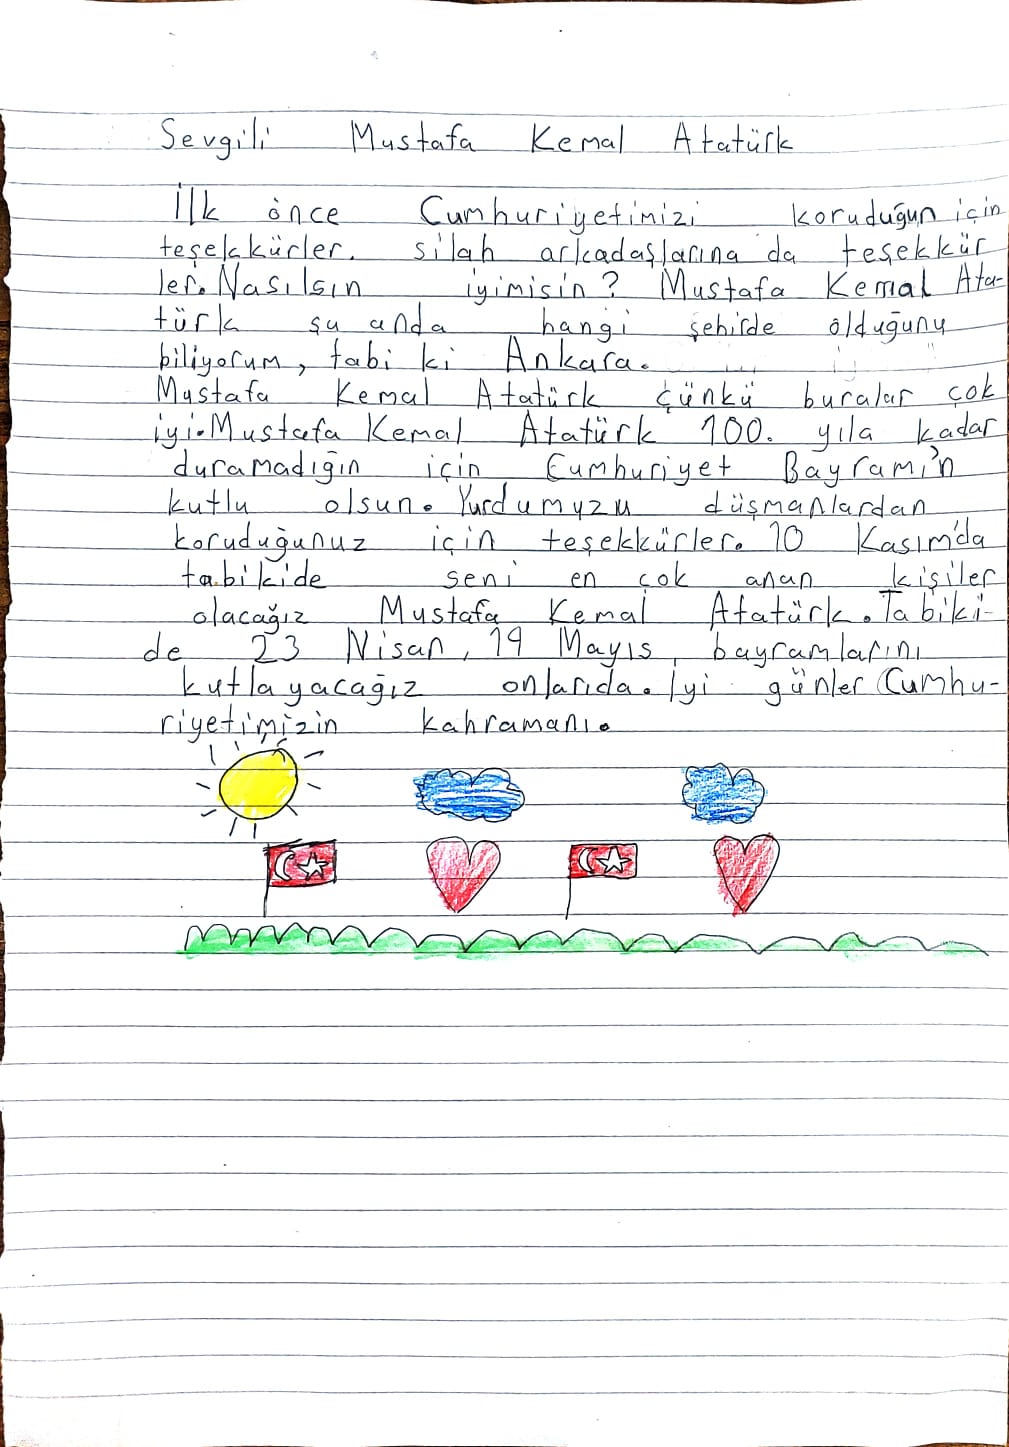 Sevgili Mustafa Kemal Atatürk
İlk önce Cumhuriyetimizi koruduğun için
teşekkürler. silah arkadaşlarına da teşekkür
ler. Nasılsın iyimisin? Mustafa Kemal Ata-
türk şu anda hangi şehirde olduğunu
biliyorum, tabi ki Ankara.
Mustafa Kemal Atatürk çünkü buralar çok
iyi. Mustafa Kemal Atatürk 100. yıla kadar
duramadığın için Cumhuriyet Bayramı'n
kutlu olsun. Yurdumuzu düşmanlardan
koruduğunuz için teşekkürler. 10 Kasım'da
tabikide seni en çok anan kişiler
olacağız Mustafa Kemal Atatürk. Tabiki-
de 23 Nisan, 19 Mayıs, bayramlarını
kutlayacağız onlarıda. İyi günler Cumhu-
riyetimizin kahramanı.